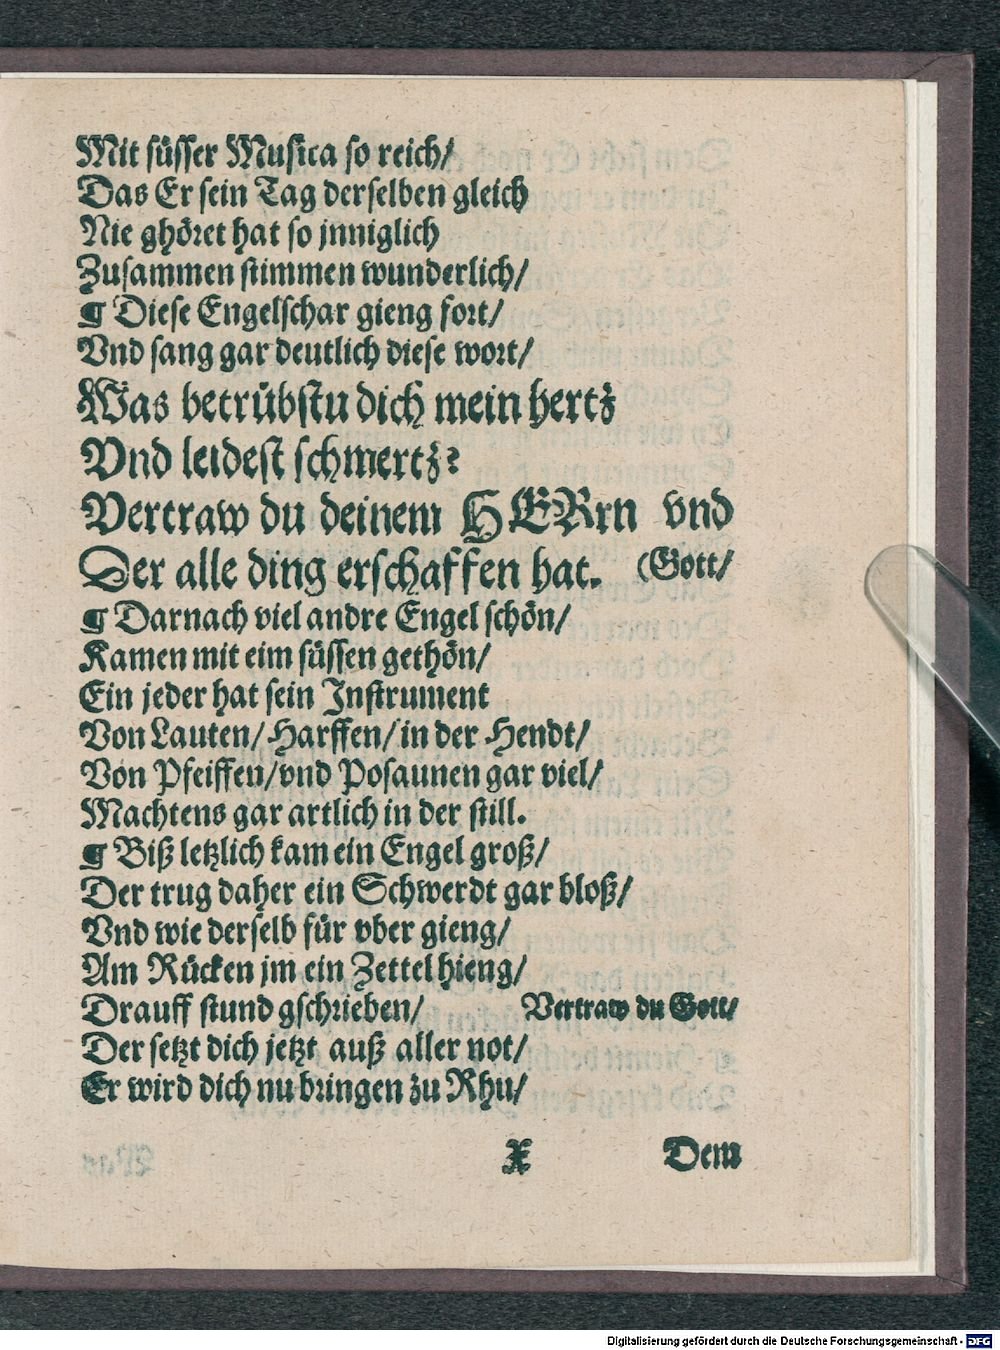 Mit süsser Musica so reich/
Das Er sein Tag derselben gleich
Nie ghöret hat so jnniglich
Zusammen stimmen wunderlich/
¶ Diese Engelschar gieng fort/
Vnd sang gar deutlich diese wort/
Was betrübstu dich mein hertz
Vnd leidest schmertz?
Vertraw du deinem HERrn vnd
Der alle ding erschaffen hat. (Gott/
¶ Darnach viel andre Engel schön/
Kamen mit eim süssen gethön/
Ein jeder hat sein Instrument
Von Lauten/Harffen/in der Hendt/
Von Pfeiffen/vnd Posaunen gar viel/
Machtens gar artlich in der still.
¶ Biß letzlich kam ein Engel groß/
Der trug daher ein Schwerdt gar bloß/
Vnd wie derselb für vber gieng/
Am Rücken jm ein Zettel hieng/
Drauff stund gschrieben/ Vertraw du Gott/
Der setzt dich jetzt auß aller not/
Er wird dich nu bringen zu Rhu/
X Dem
Digitalisierung gefördert durch die Deutsche Forschungsgemeinschaft - DFG